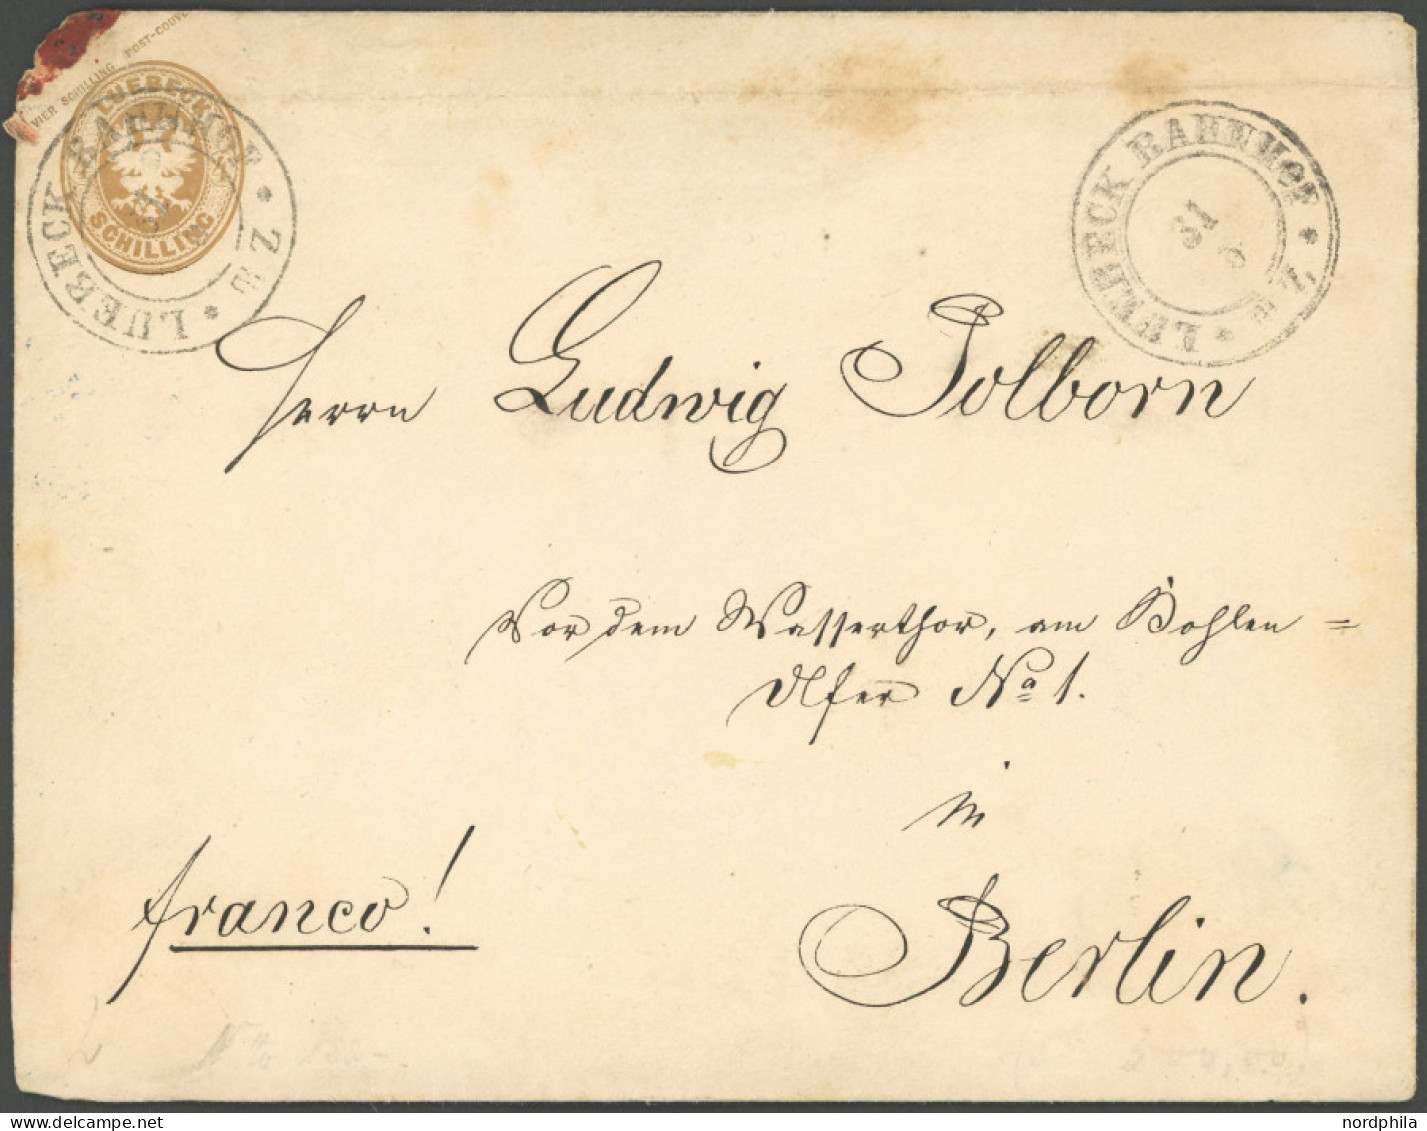 VIER SCHILLING POST-COUV
LUEBECK
SCHILLING
LUEBECK BAHNHOF * Z W *
LUEBECK BAHNHOF * Z W *
31
8
Herrn Ludwig Polborn
Vor dem Wasserthor, am Bohlen=
Ufer No 1.
in
Berlin.
franco!
nordphila